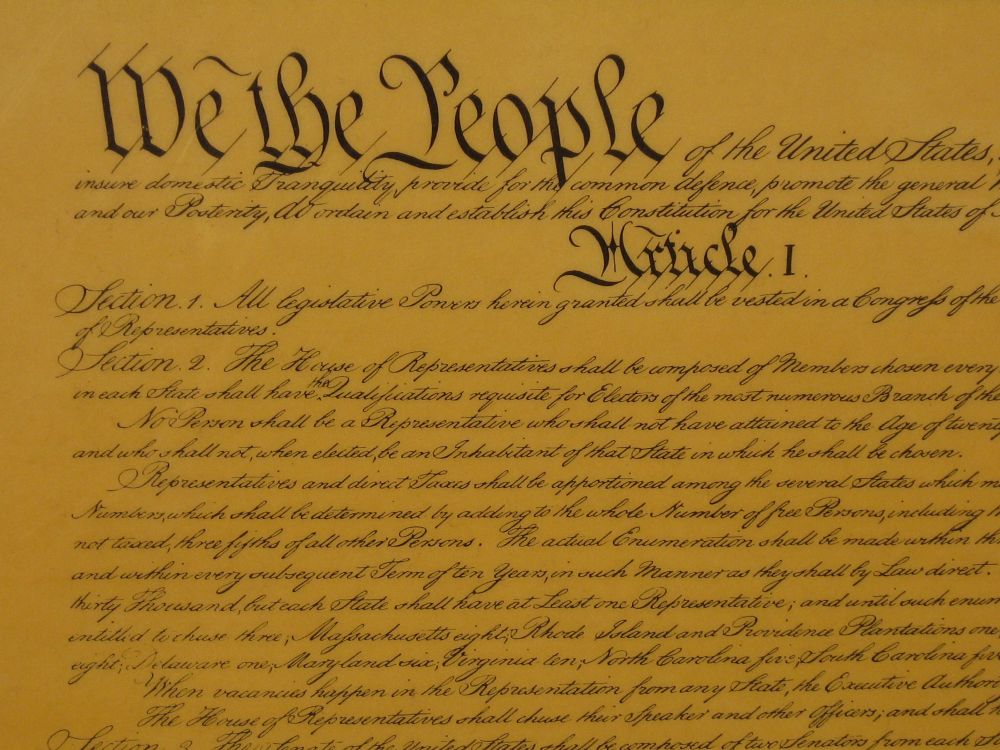 We the People of the United States,
insure domestic Tranquility, provide for the common defence, promote the general
and our Posterity, do ordain and establish this Constitution for the United States of
Article. I.
Section. 1. All legislative Powers herein granted shall be vested in a Congress of the
of Representatives.
Section. 2. The House of Representatives shall be composed of Members chosen every
in each State shall have the Qualifications requisite for Electors of the most numerous Branch of the
No Person shall be a Representative who shall not have attained to the Age of twenty
and who shall not, when elected, be an Inhabitant of that State in which he shall be chosen.
Representatives and direct Taxes shall be apportioned among the several States which
Numbers, which shall be determined by adding to the whole Number of free Persons, including
not taxed, three fifths of all other Persons. The actual Enumeration shall be made within
and within every subsequent Term of ten Years, in such Manner as they shall by Law direct.
thirty Thousand, but each State shall have at Least one Representative; and until such
entitled to chuse three, Massachusetts eight, Rhode Island and Providence Plantations one
eight, Delaware one, Maryland six, Virginia ten, North Carolina five, South Carolina
When vacancies happen in the Representation from any State, the Executive
The House of Representatives shall chuse their Speaker and other Officers; and shall
Section. 3. The Senate of the United States shall be composed of two Senators from each